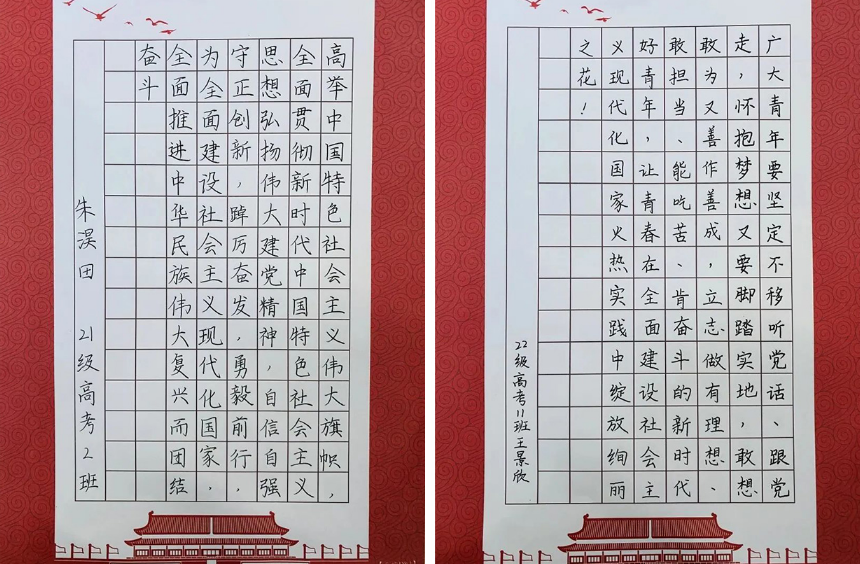 高举中国特色社会主义伟大旗帜，
全面贯彻新时代中国特色社会主义
思想弘扬伟大建党精神，自信自强
守正创新，踔厉奋发，勇毅前行，
为全面建设社会主义现代化国家，
全面推进中华民族伟大复兴而团结
奋斗
朱淏田 21级高考2班
广大青年要坚定不移听党话、跟党
走，怀抱梦想又要脚踏实地，敢想
敢为又善作善成，立志做有理想、
敢担当、能吃苦、肯奋斗的新时代
好青年，让青春在全面建设社会主
义现代化国家火热实践中绽放绚丽
之花！
22级高考11班王景欣